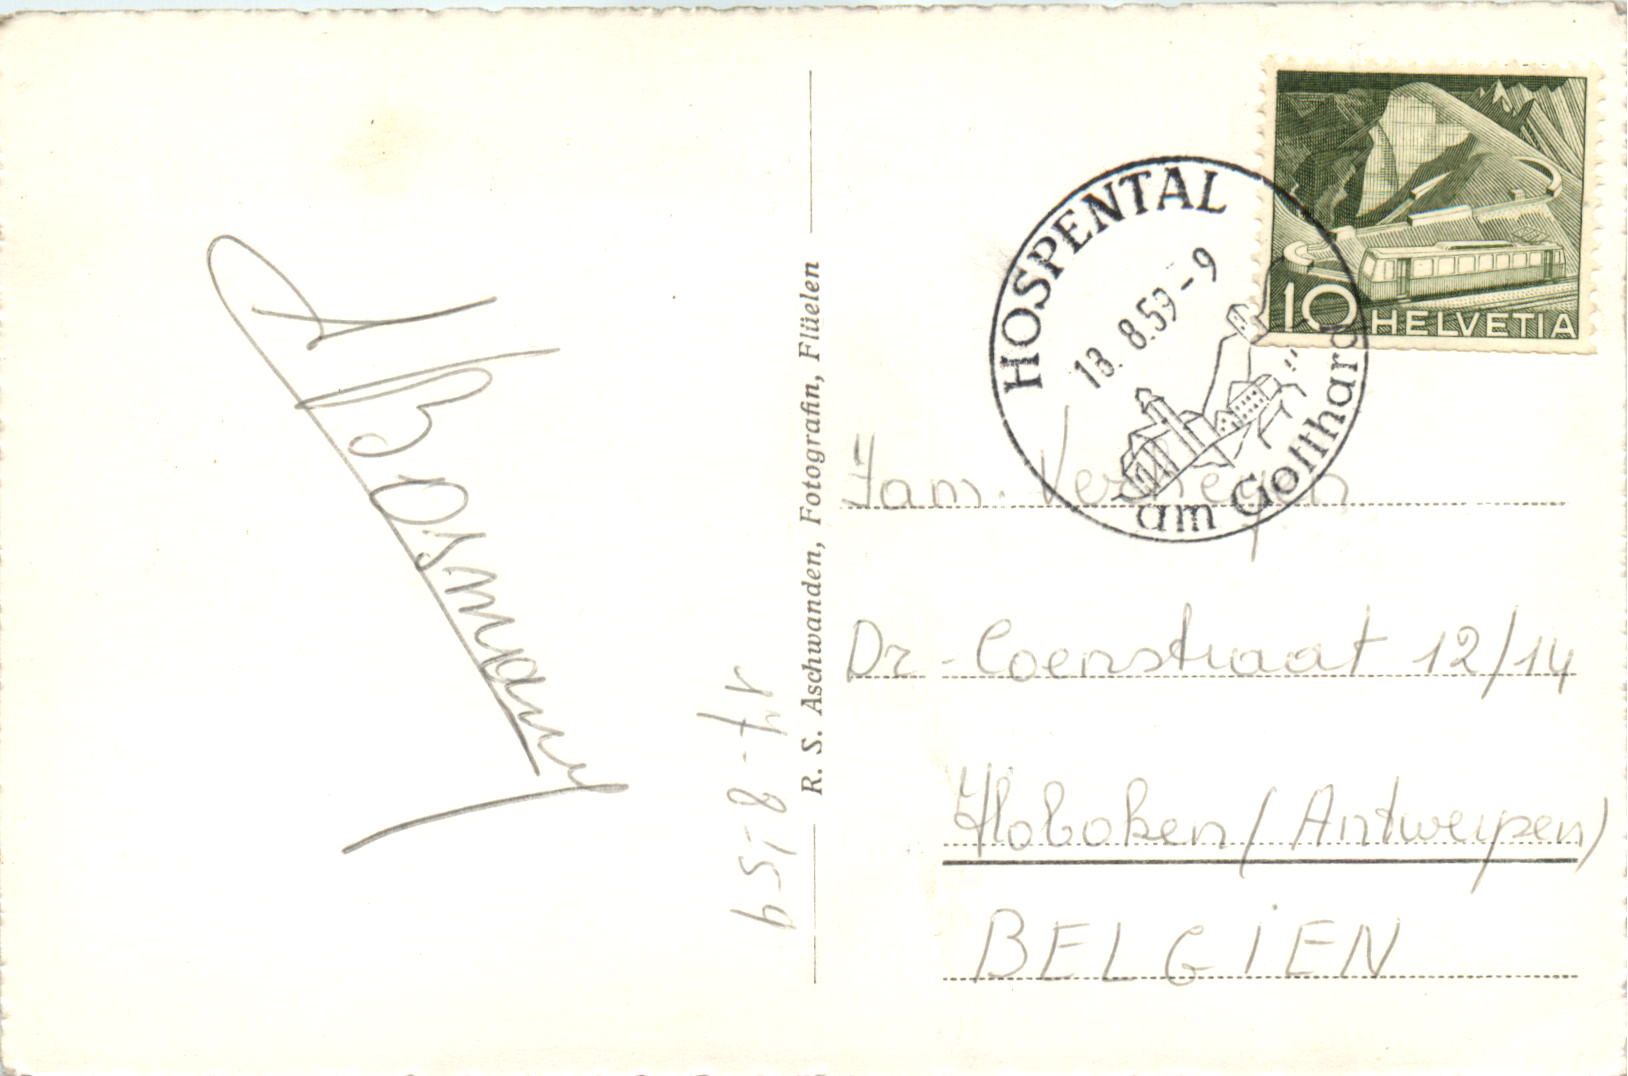 10 HELVETIA
HOSPENTAL
13. 8.59-9
am Gotthard
R. S. Aschwanden, Fotografin, Flüelen
Bosmans
17-8-59
Fam. Verheyen
Dr-Coenstraat 12/14
Hoboken (Antwerpen)
BELGIEN